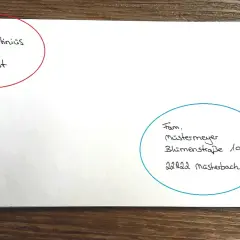 st
Fam.
Mustermeyer
Blumenstraße 10
22222 Musterbach